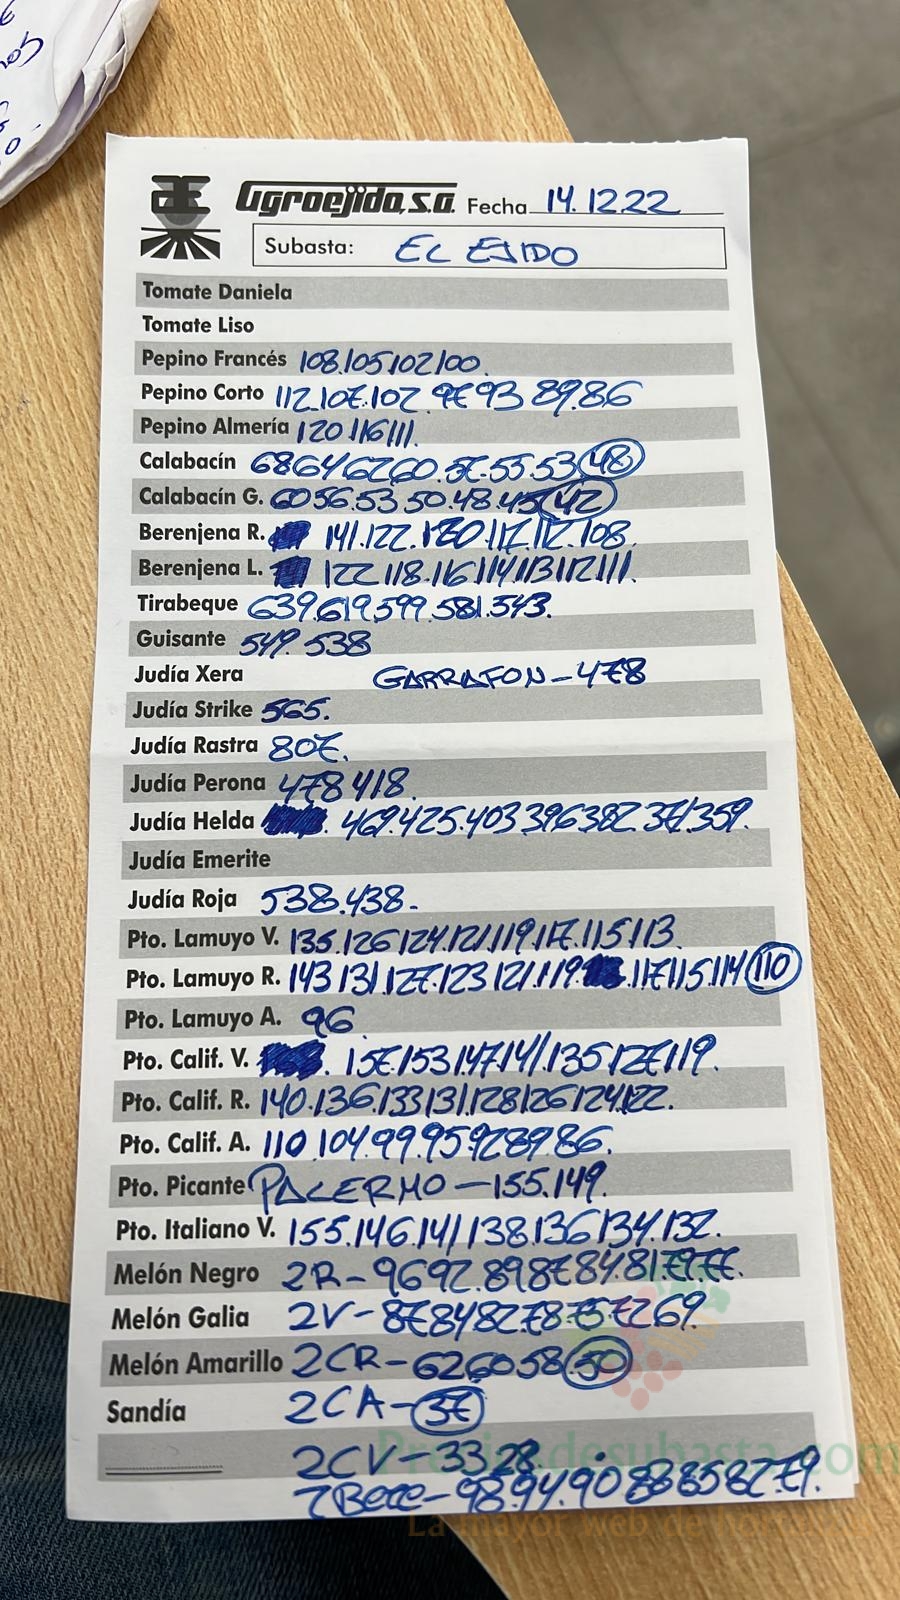 Agroejido, s.a. Fecha 14.12.22
Subasta: EL EJIDO
Tomate Daniela
Tomate Liso
Pepino Francés 108.105.102.100.
Pepino Corto 112.107.102 97 93 89.86
Pepino Almería 120.116.111.
Calabacín 68 64 62 60. 57.55.53 48
Calabacín G. 60 56.53 50.48.45 42
Berenjena R. 141.122.120.117.112.108.
Berenjena L. 122.118.116.114.113.112.111.
Tirabeque 639.619.599.581.543.
Guisante 549. 538
Judía Xera GARRAFON - 478
Judía Strike 565.
Judía Rastra 807.
Judía Perona 478 418.
Judía Helda 469.425.403 396 382 371.359.
Judía Emerite
Judía Roja 538.438.
Pto. Lamuyo V. 135.126 124.121.119.117.115.113.
Pto. Lamuyo R. 143 131.127.123 121.119. 117.115.114 110
Pto. Lamuyo A. 96
Pto. Calif. V. 157.153 147 141.135 127 119.
Pto. Calif. R. 140.136.133.131.128 126 124.122.
Pto. Calif. A. 110 104.99.95 92 89.86.
Pto. Picante PALERMO - 155.149.
Pto. Italiano V. 155.146.141 138.136 134.132.
Melón Negro 2R - 96 92.89 87 84.81.79.77.
Melón Galia 2V - 87 84 82 78 75 72 69.
Melón Amarillo 2CR - 62 60 58 50
Sandía 2CA - 37
2CV - 33 28
98.94.90 88 85 82 79.
Preciosdesubasta.com
La mayor web de